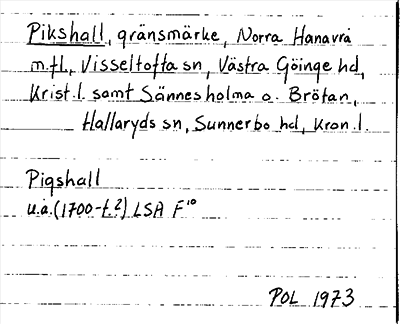 Pikshall, gränsmärke, Norra Hanavrå
m.fl., Visseltofta sn, Västra Göinge hd,
Krist. l. samt Sännesholma o. Brötan,
Hallaryds sn, Sunnerbo hd, Kron. l.
Pigshall
u.å. (1700-t.?) LSA F¹⁰
POL 1973